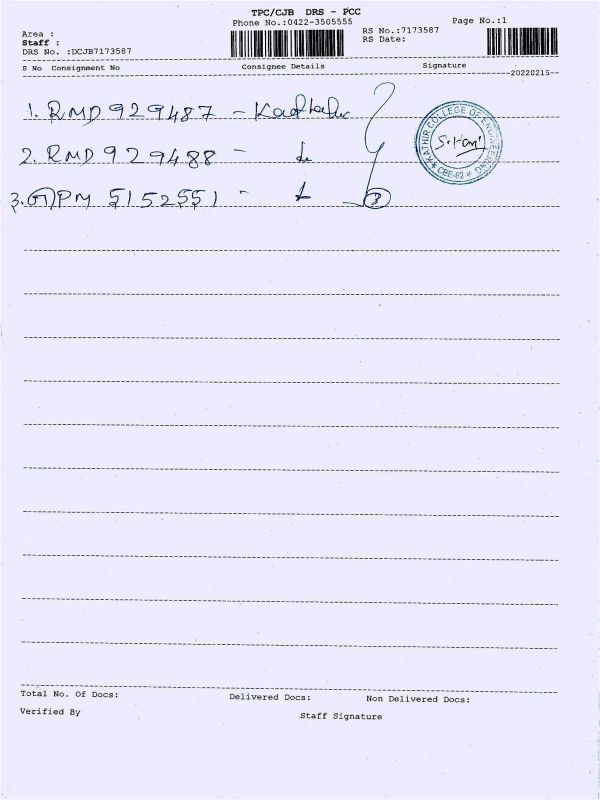 TPC/CJB DRS - PCC
Phone No.:0422-3505555
Page No.:1
Area :
RS No.:7173587
Staff :
RS Date:
DRS No. :DCJB7173587
S No Consignment No Consignee Details Signature
20220215
1. RMD 929487 -
2. RMD 929488 -
3. PM 5152551 -
KATHIR COLLEGE OF ENGINEERING
CBE-62
Total No. Of Docs: Delivered Docs: Non Delivered Docs:
Verified By Staff Signature